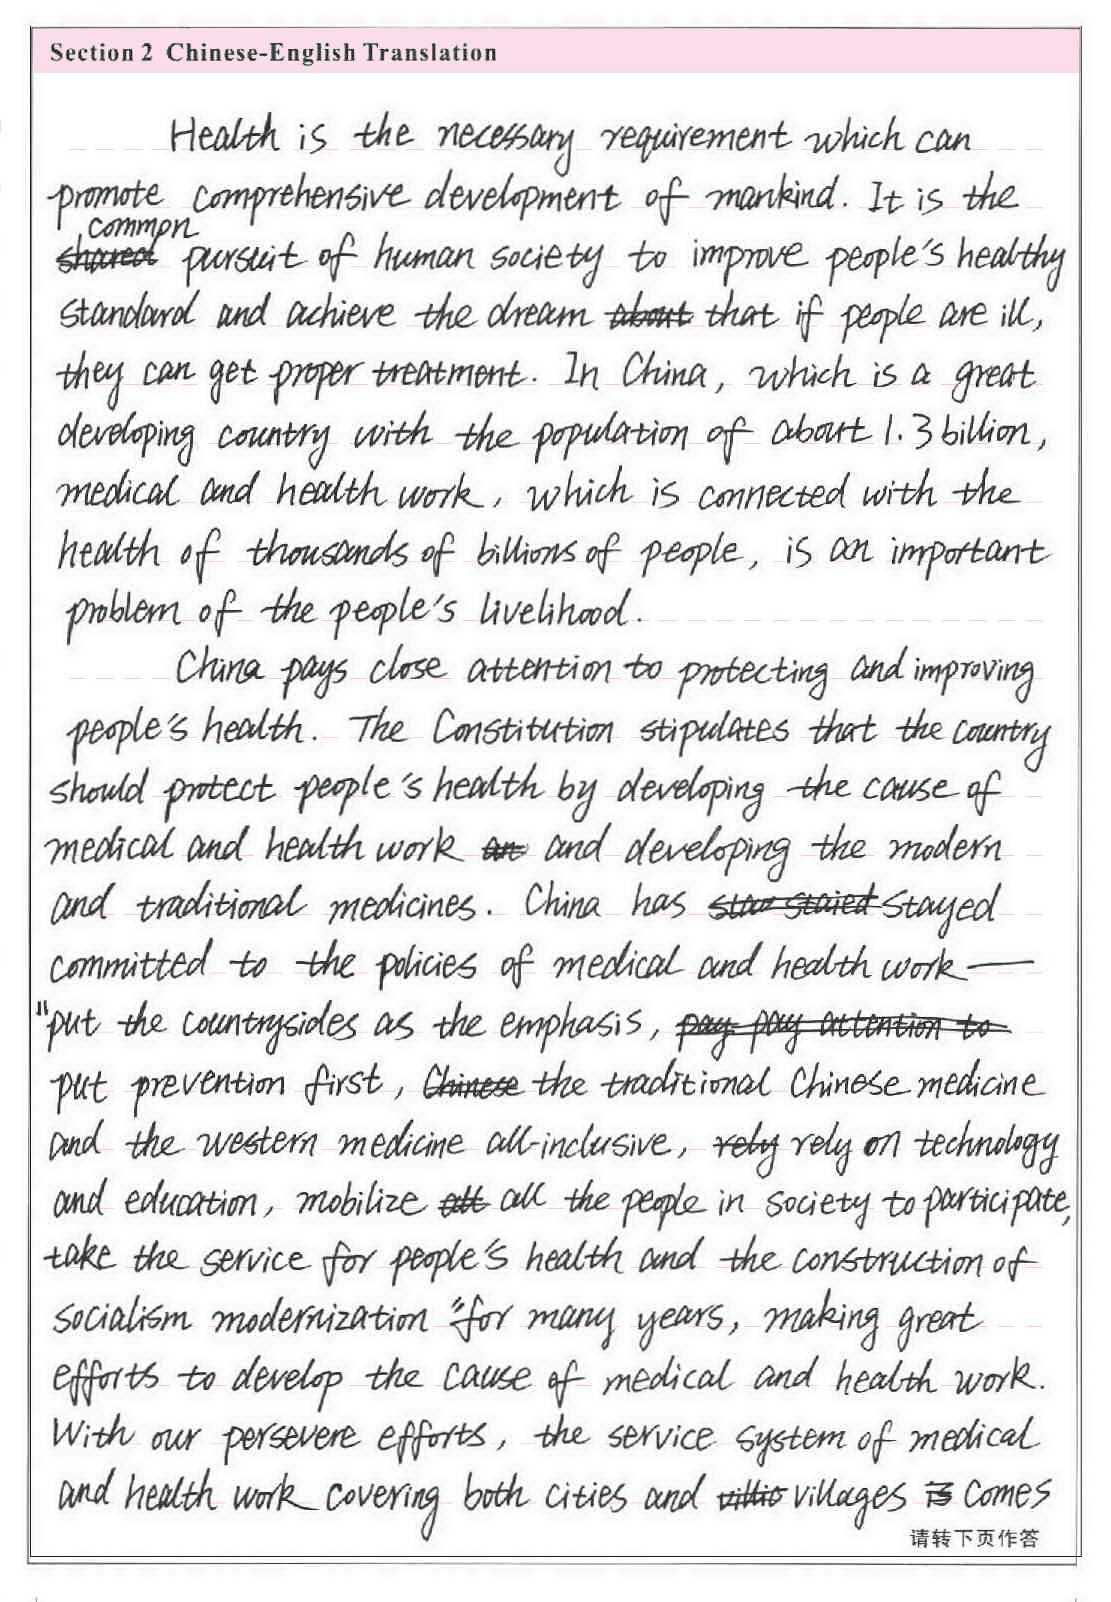 Section 2 Chinese-English Translation
Health is the necessary requirement which can
promote comprehensive development of mankind. It is the
common
shared pursuit of human society to improve people's healthy
standard and achieve the dream about that if people are ill,
they can get proper treatment. In China, which is a great
developing country with the population of about 1.3 billion,
medical and health work, which is connected with the
health of thousands of billions of people, is an important
problem of the people's livelihood.
China pays close attention to protecting and improving
people's health. The Constitution stipulates that the country
should protect people's health by developing the cause of
medical and health work an and developing the modern
and traditional medicines. China has staied stayed
committed to the policies of medical and health work —
"put the countrysides as the emphasis, pay pay attention to
put prevention first, Chinese the traditional Chinese medicine
and the western medicine all-inclusive, rely rely on technology
and education, mobilize all all the people in society to participate,
take the service for people's health and the construction of
socialism modernization" for many years, making great
efforts to develop the cause of medical and health work.
With our persevere efforts, the service system of medical
and health work covering both cities and villages is comes
请转下页作答